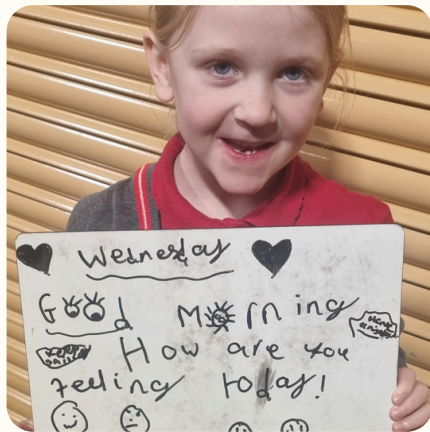 Wednesday
Good Morning
How are you
feeling today!